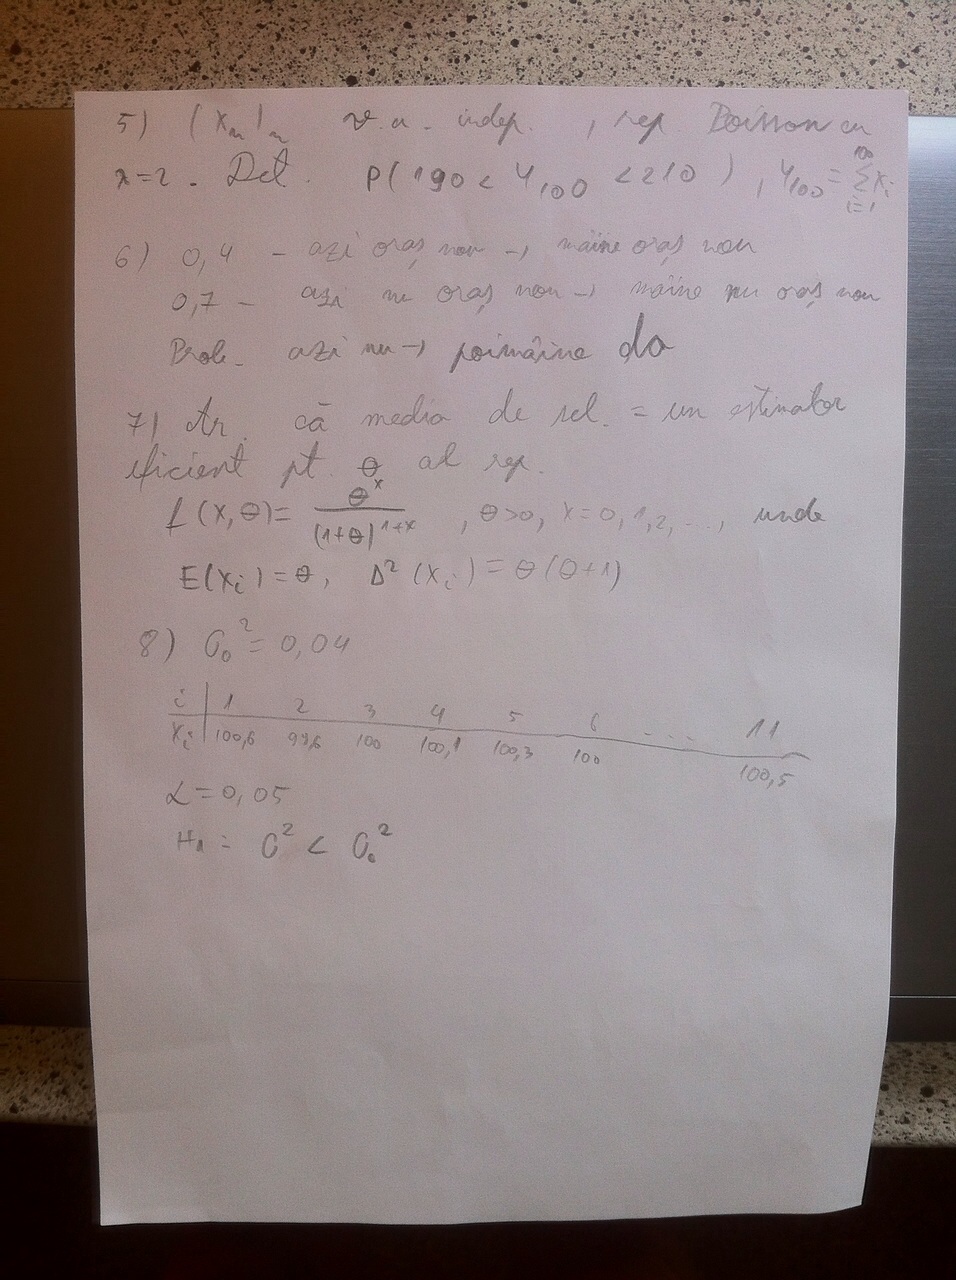 5) (Xn)n v.a. indep., rep Poisson cu
λ=2. Det. P(190 < Y100 < 210), Y100 = Σ_{i=1}^{100} Xi
6) 0,4 - azi oraș nou → mâine oraș nou
0,7 - azi nu oraș nou → mâine nu oraș nou
Prob. azi nu → poimâine da
7) Ar. că media de sel. = un estimator
eficient pt. θ al rep.
f(x,θ) = θ^x / (1+θ)^{1+x}, θ>0, x=0,1,2,..., unde
E(Xi) = θ, D²(Xi) = θ(θ+1)
8) σ0² = 0,04
i | 1 2 3 4 5 6 ... 11
Xi | 100,6 99,6 100 100,1 100,3 100 100,5
α=0,05
H1 : σ² < σ0²